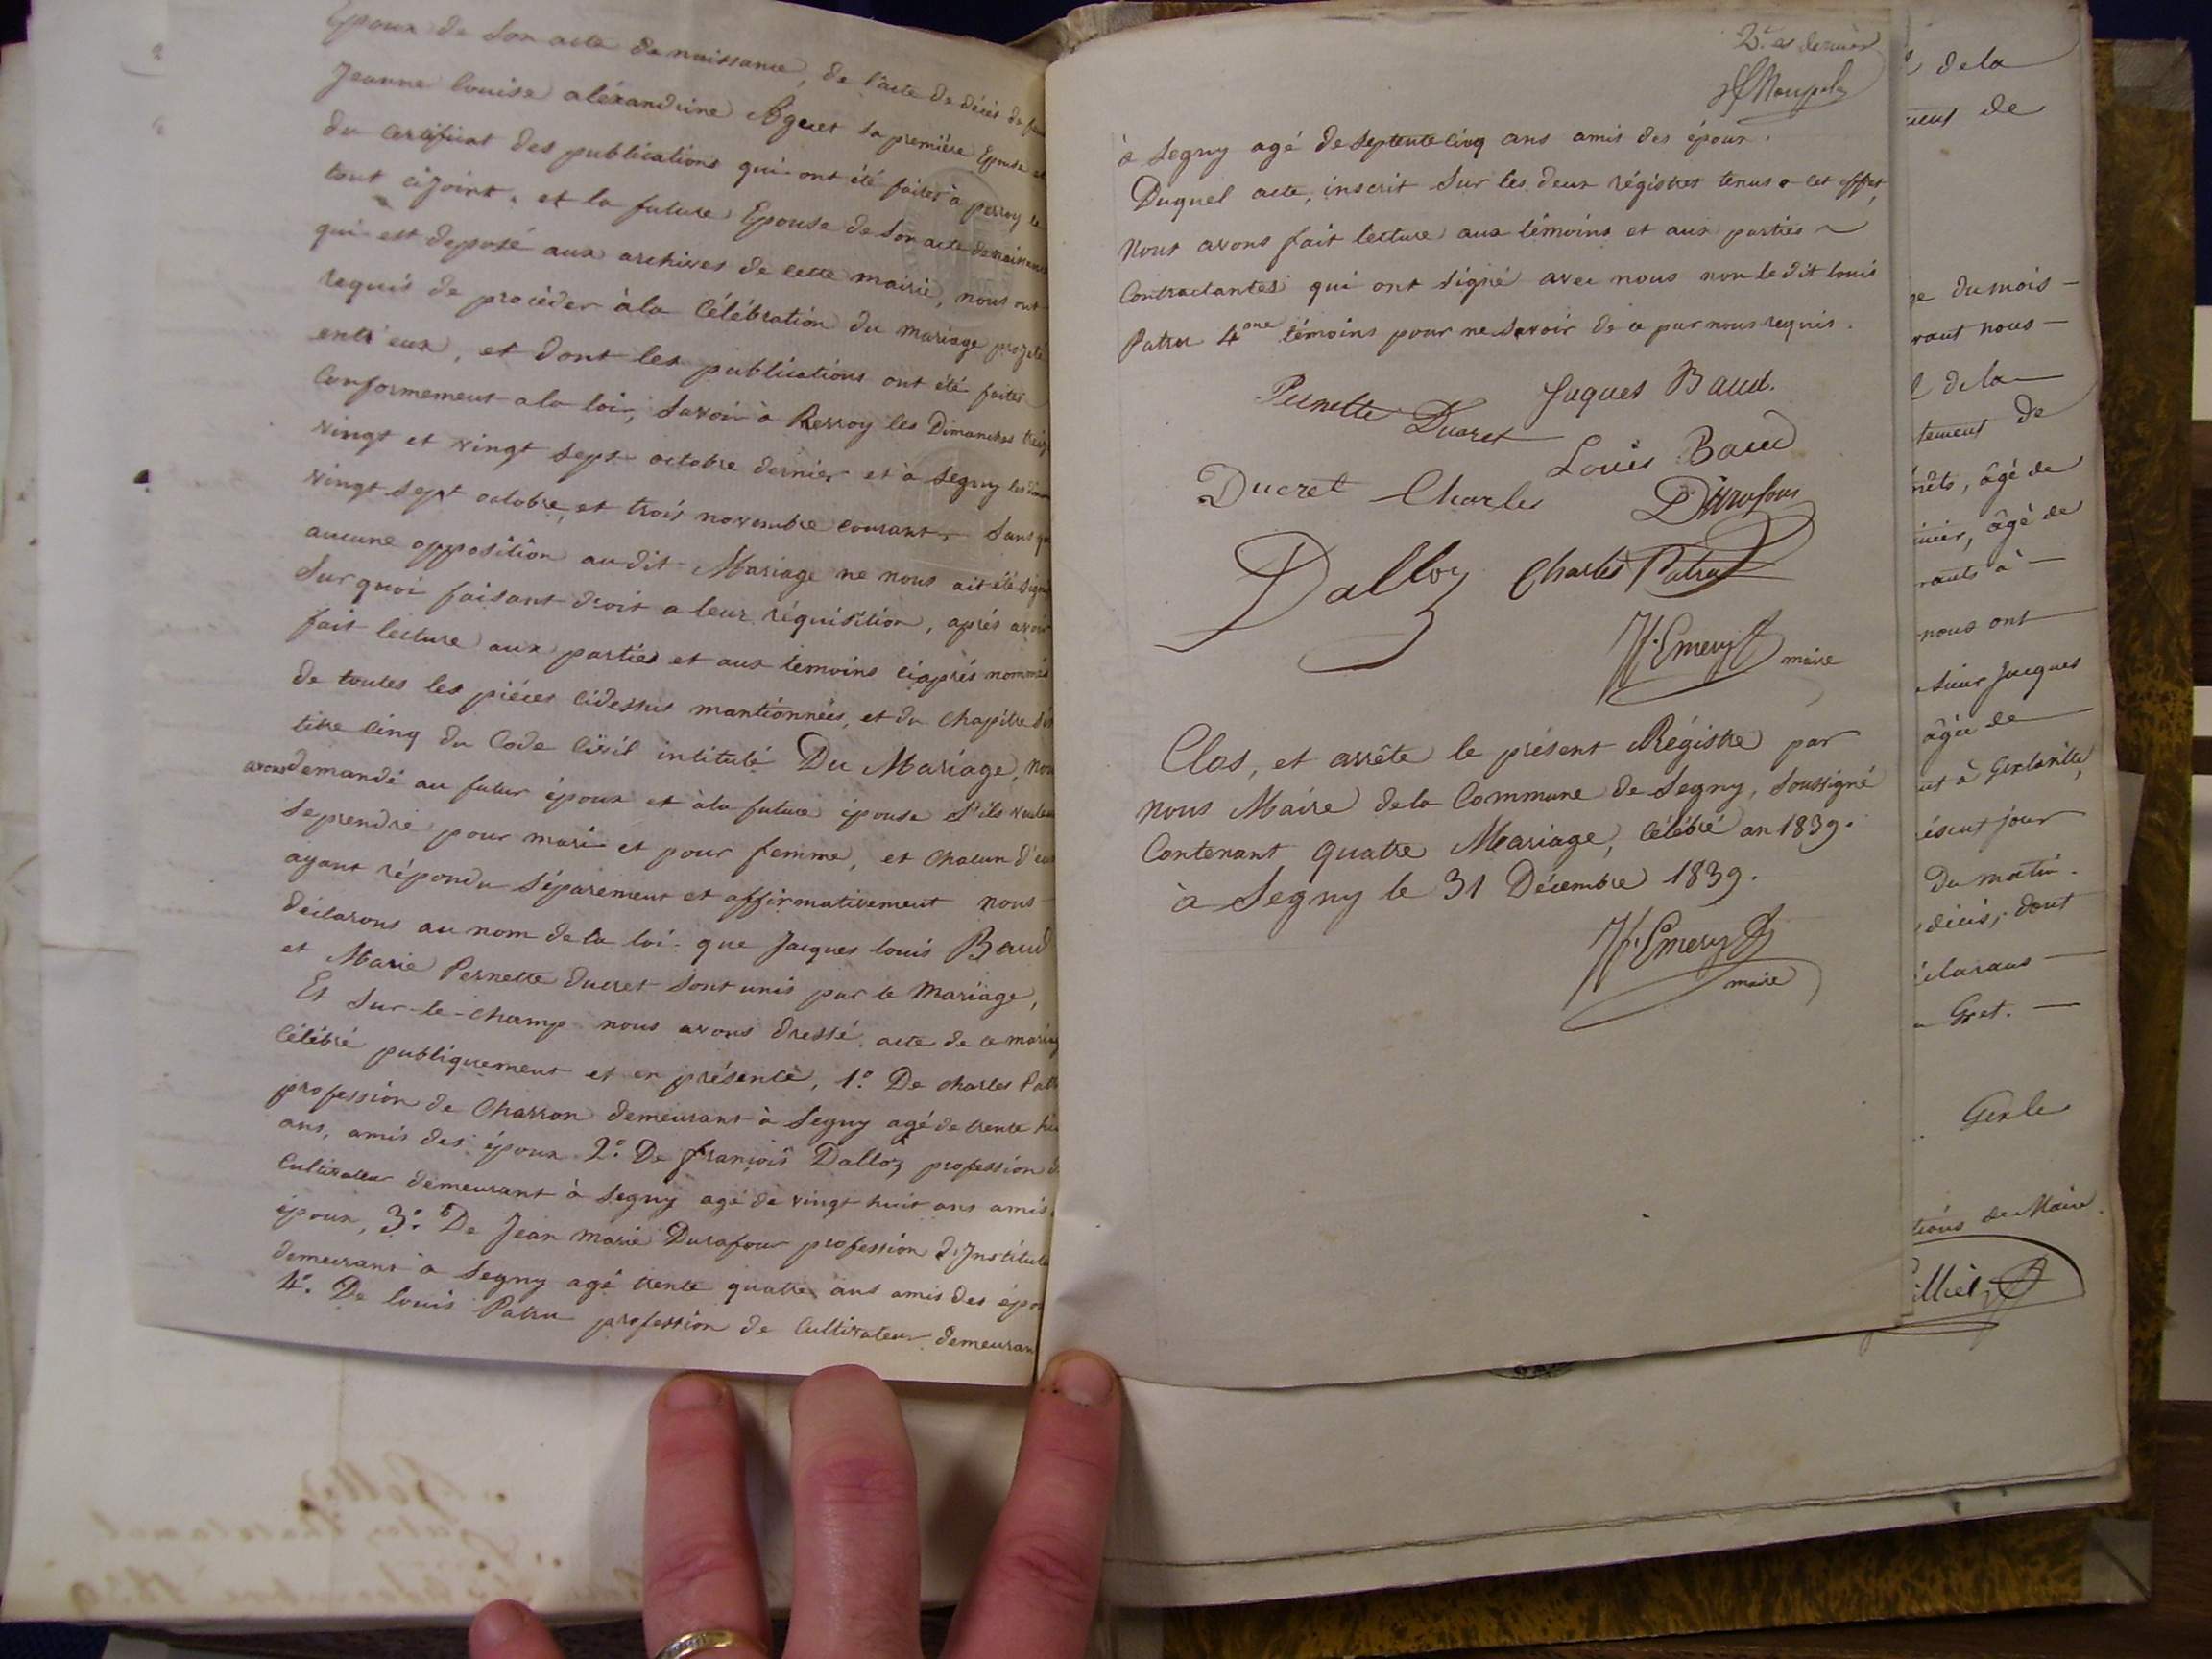 Epoux de son acte de naissance, de l'acte de décès de
Jeanne louise aléxandrine Aguet sa première Epouse et
du certificat des publications qui ont été faites à perroy le
tout cijoint. et la future Epouse de son acte de naissance
qui est deposé aux archives de cette mairie, nous ont
requis de procéder à la Célébration du mariage projeté
entr'eux, et dont les publications ont été faites
Conformement a la loi, savoir à Perroy les Dimanches treize
vingt et vingt sept octobre dernier et à Segny les
vingt sept octobre, et trois novembre courant, Sans que
aucune opposition audit Mariage ne nous ait été
Sur quoi faisant droit a leur réquisition, aprés avoir
fait lecture aux parties et aux temoins ciaprés nommés
de toutes les piéces cidessus mantionnées, et du Chapitre six
titre cinq du Code Civil intitulé Du Mariage, nous
avons demandé au futur époux et à la future épouse s'ils veulent
se prendre pour mari et pour femme, et Chacun d'eux
ayant répondu séparement et affirmativement nous
déclarons au nom de la loi que Jacques louis Baud
et Marie Pernette Ducret sont unis par le Mariage,
Et sur-le-champ nous avons dressé acte de ce mariage
Célébré publiquement et en présence, 1º De charles Patru
profession de Charron demeurant à Segny agé de trente
ans, amis des époux 2º De françois Dalloz profession de
Cultivateur demeurant à Segny agé de vingt huit ans amis
époux, 3º De Jean marie Durafour profession d'Institute
demeurant à Segny agé trente quatre ans amis des époux
4º De louis Patru profession de Cultivateur demeurant
2e et dernier
à Segny agé de septente cinq ans amis des époux.
Duquel acte, inscrit sur les deux régistres tenus a cet effet,
Nous avons fait lecture aux témoins et aux parties
Contractantes qui ont signé avec nous non le dit louis
Patru 4eme témoins pour ne savoir de ce par nous requis.
Pernette Ducret Jaques Baud.
Ducret Charles Louis Baud
Durafour
Dalloz Charles Patru
Emery maire
Clos, et arrête le présent Régistre par
nous Maire de la Commune de Segny, soussigné
Contenant quatre Mariage, Célébré an 1839.
à Segny le 31 Décembre 1839.
Emery
maire
de la
de
du mois
nous
de la
tement de
âgé de
âgé de
à
nous ont
sieur Jacques
âgée de
jour
du matin.
décès, dont
Gex le
de Maire.